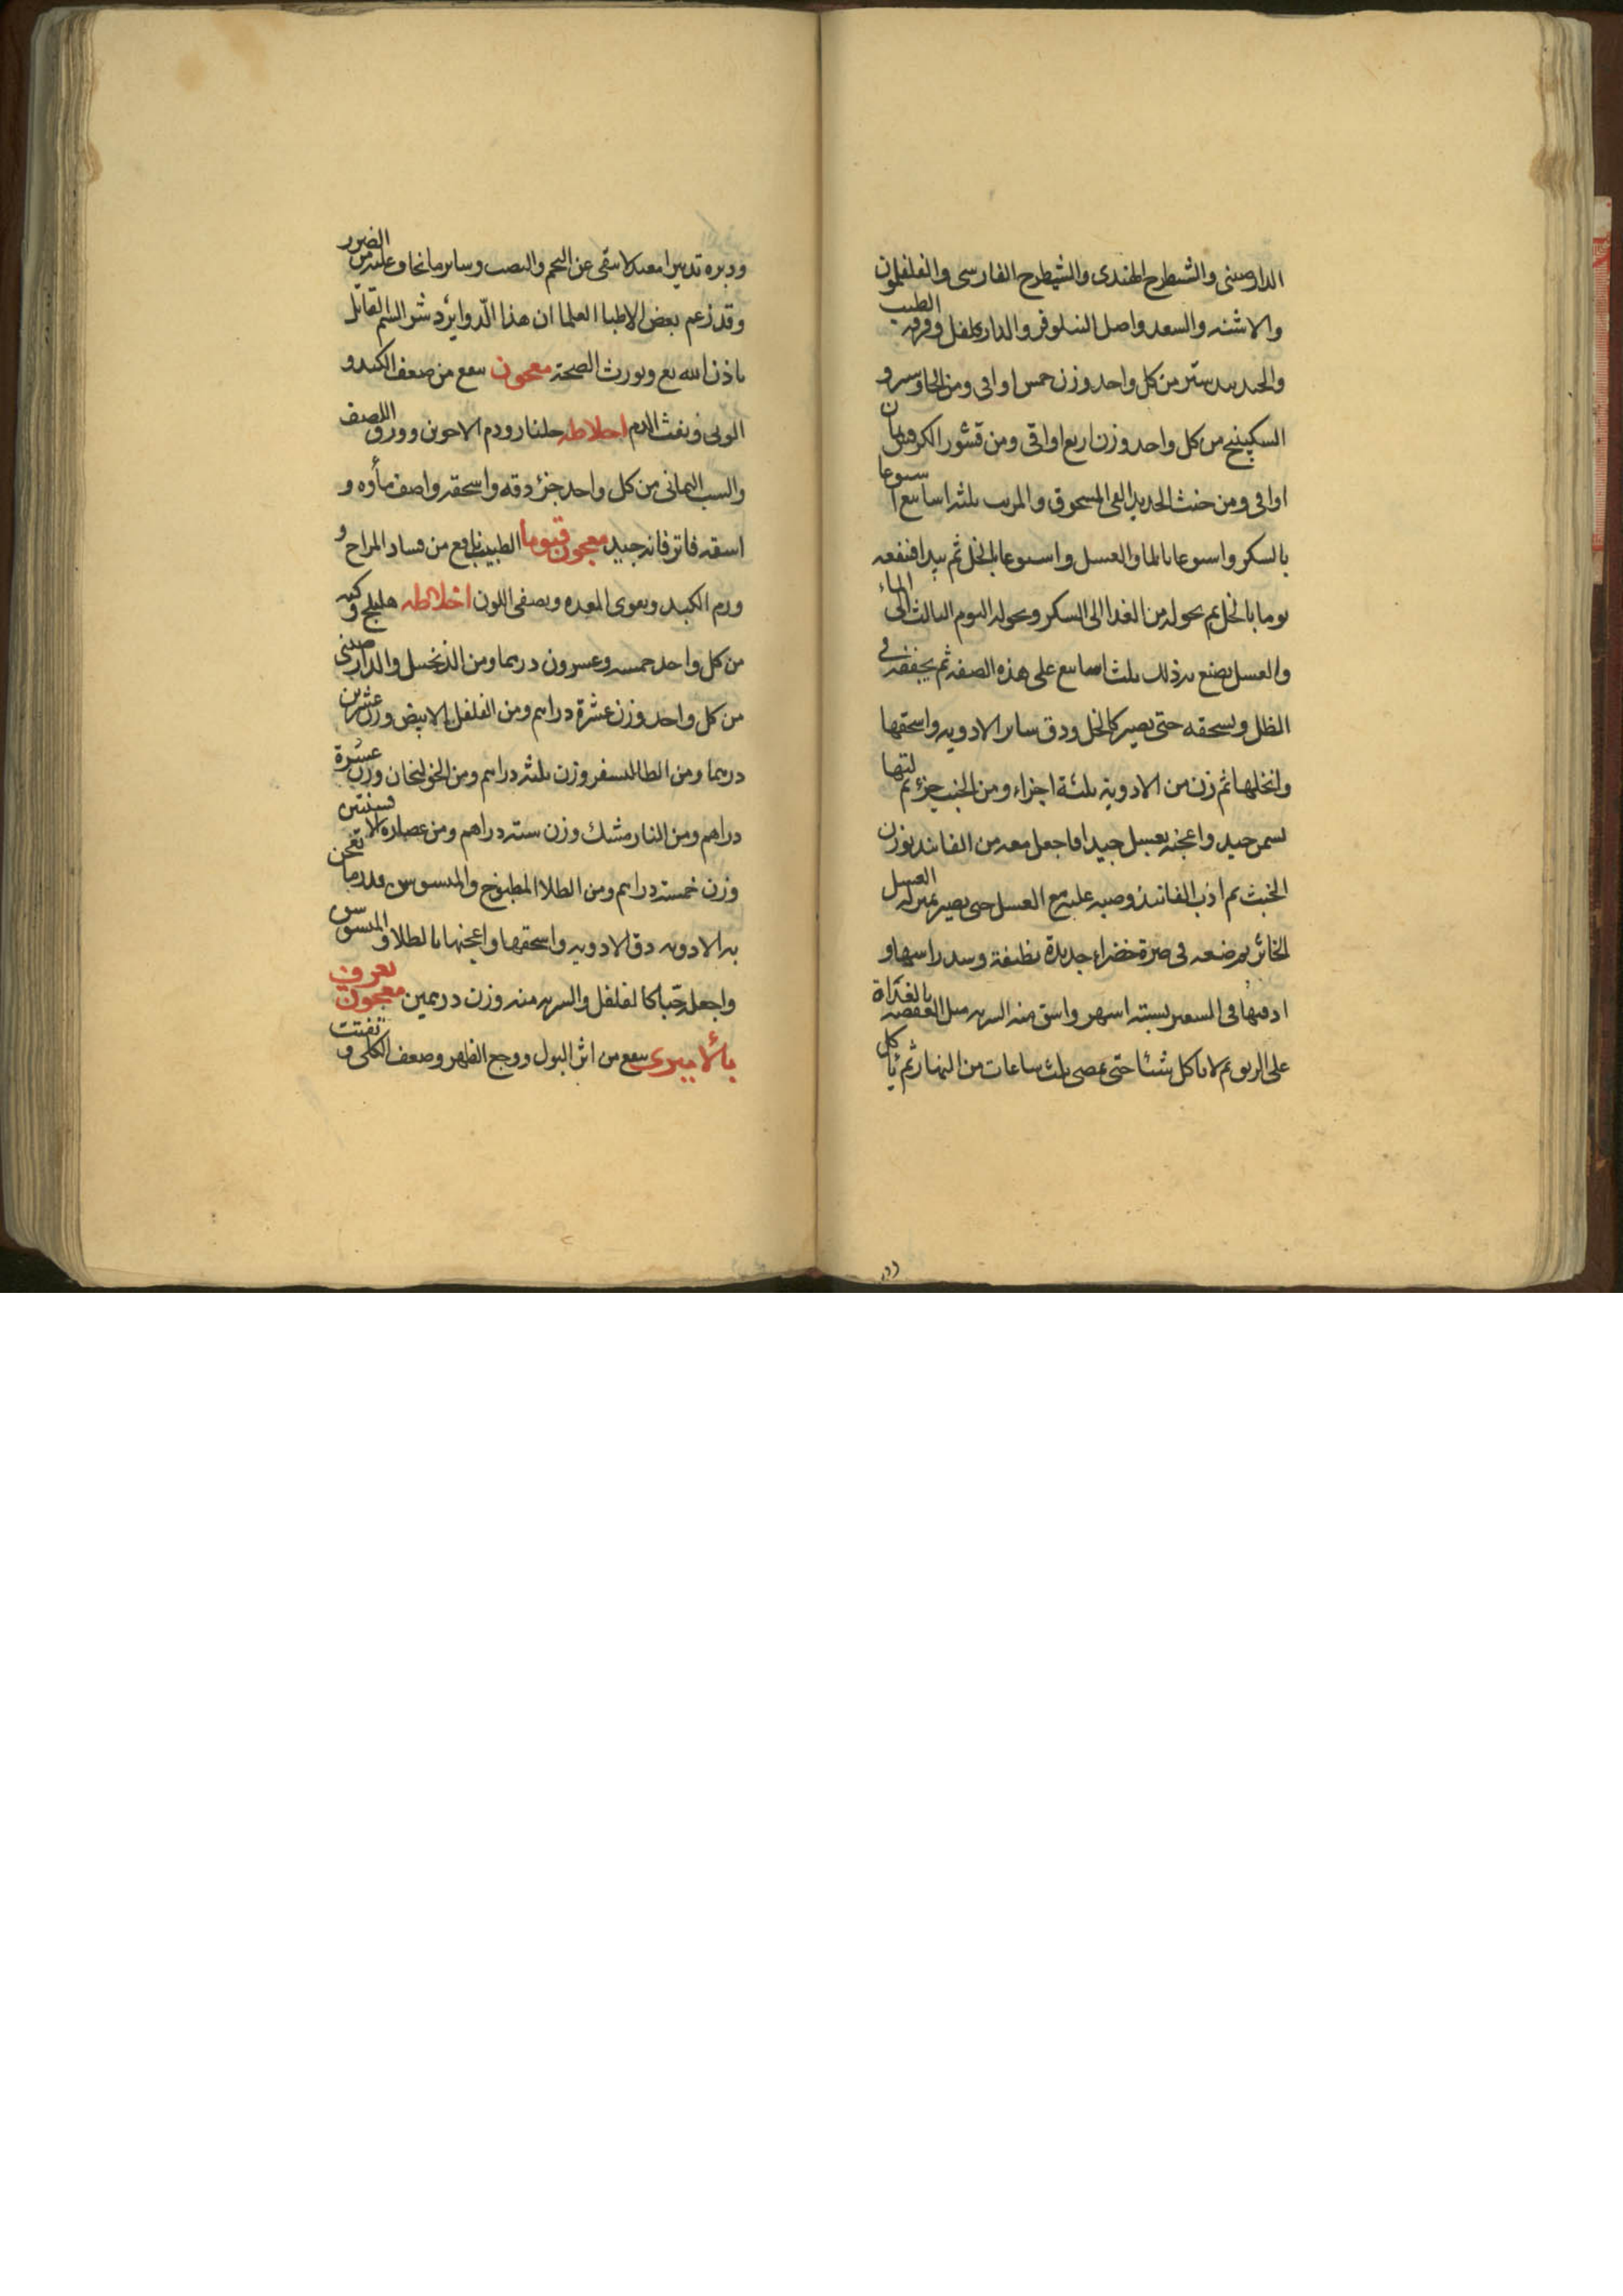 الدارصينى والشيطرح الهندى والشيطرح الفارسى والفلفلمون
والاشنه والسعد واصل النيلوفر والدارفلفل وقرفه الطيب
والجندبيدستر من كل واحد وزن خمس اواقى ومن الجاوسير و
السكبينج من كل واحد وزن اربع اواقى ومن قشور الكرويا ثمان
اواقى ومن خبث الحديد النقى المسحوق والمربب ثلثة اسابيع اسبوعا
بالسكر واسبوعا بالماء والعسل واسبوعا بالخل ثم يبدا فينقعه
يوما بالخل ثم يحوله من الغد الى السكر ويحوله اليوم الثالث الى الماء
والعسل يصنع به ذلك ثلث اسابيع على هذه الصفه ثم يجففه فى
الظل ويسحقه حتى يصير كالكحل ودق ساير الادويه واسحقها
وانخلها ثم زن من الادوية ثلثة اجزاء ومن الخبث جزء ثم لتها
بسمن جيد واعجنه بعسل جيد واجعل معه من الفانيد بوزن
الخبث ثم اذب الفانيذ وصبه عليه مع العسل حتى يصير بمنزلة العسل
الخاثر ثم ضعه فى جرة خضراء جديدة نظيفة وسد راسها و
ادفنها فى الشعير لستة اشهر واسق منه الشربه مثل العفصه بالغداة
على الريق ثم لا ياكل شيئا حتى يمضى ثلث ساعات من النهار ثم يأكل
ودبره تدبيرا معتدلا يبقى عن التخم والنصب وساير ما يخاف عليه من الضرر
وقد زعم بعض الاطبا العلما ان هذا الدوا يرد شر السم القاتل
باذن الله تع ويورث الصحة معجون ينفع من ضعف الكبد و
الوبى ونفث الدم اخلاطه جلنار ودم الاخوين وورق اللصف
والشب اليمانى من كل واحد جزء دقه واسحقه واصف ماؤه و
اسقه فاتر فانه جيد معجون قيوما الطبيب نافع من فساد المزاج و
ورم الكبد ويقوى المعده ويصفى اللون اخلاطه هليلج وكيه
من كل واحد خمسه وعشرون درهما ومن الزنجبيل والدارصينى
من كل واحد وزن عشرة دراهم ومن الفلفل الابيض وزن عشرين
درهما ومن الطاليسفر وزن ثلثة دراهم ومن الخولنجان وزن عشرة
دراهم ومن النارمشك وزن ستة دراهم ومن عصاره الافسنتين
وزن خمسة دراهم ومن الطلا المطبوخ والميسوس قدر ما تعجن
به الادويه دق الادويه واسحقها واعجنها بالطلا والميسوس
واجعله حبا كالفلفل والشربه منه وزن درهمين معجون يعرف
ينفع من اثر البول ووجع الظهر وضعف الكلى و تفتت